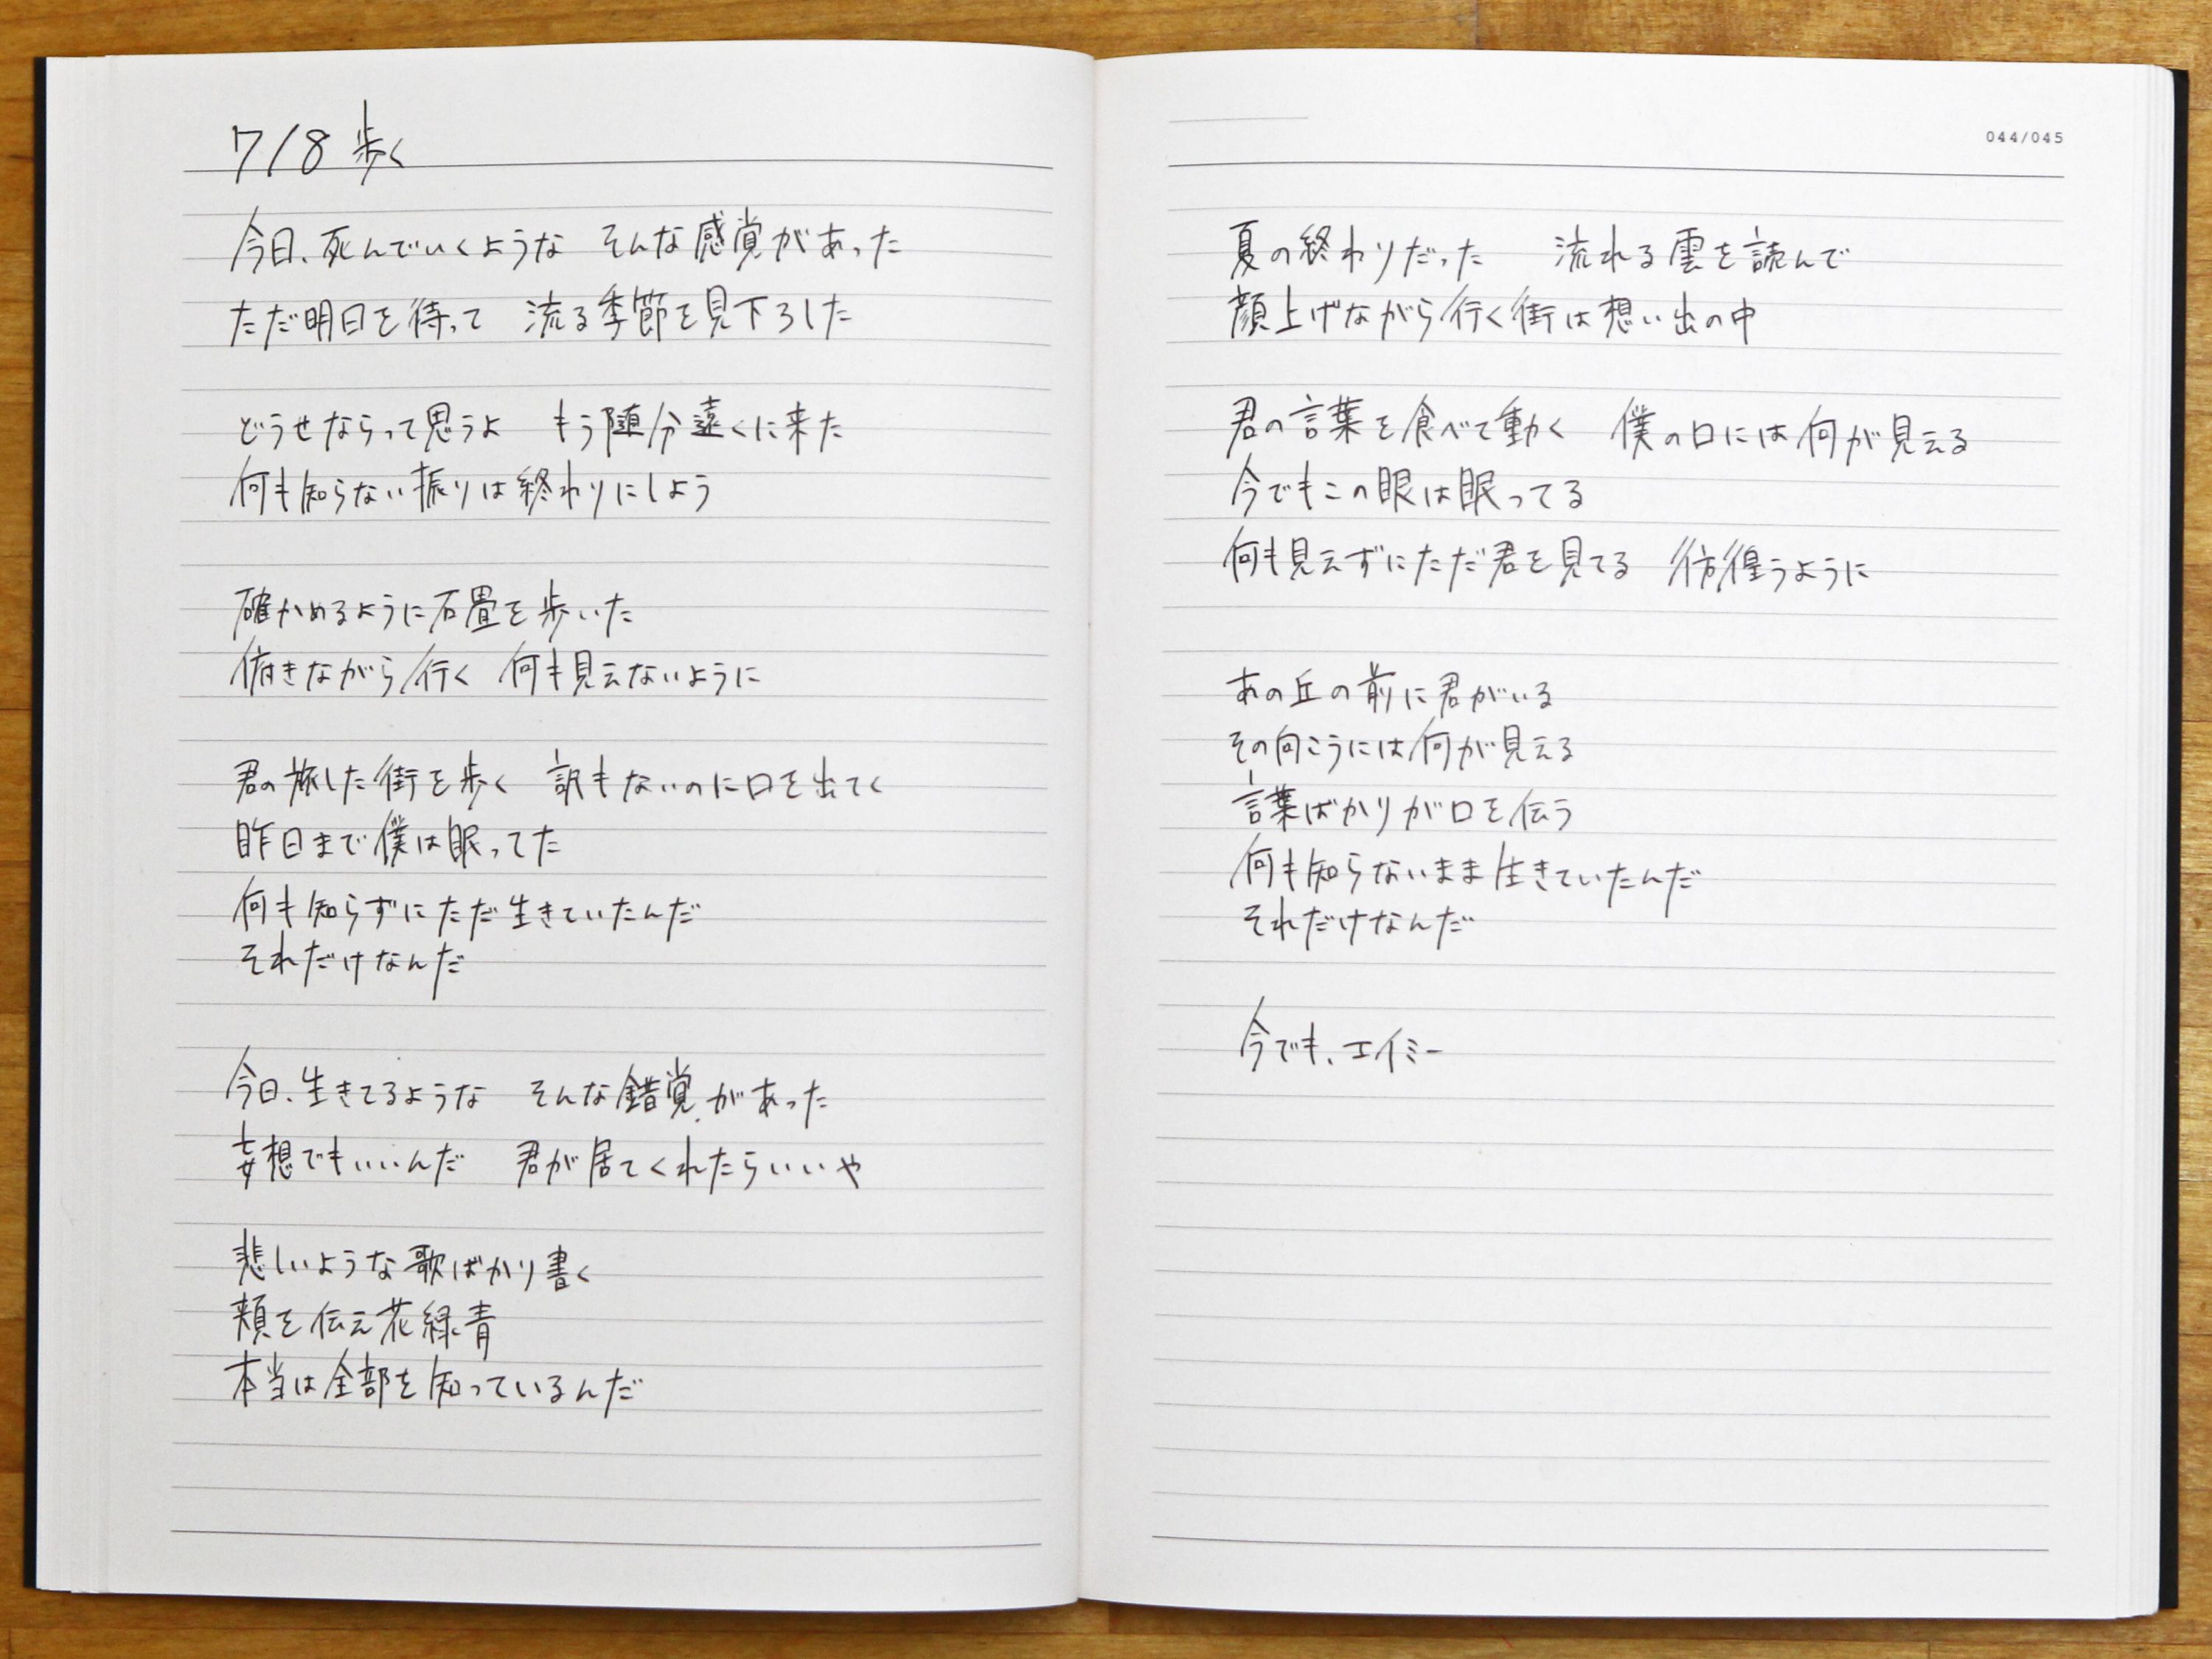 7/8 歩く
今日、死んでいくような そんな感覚があった
ただ明日を待って 流る季節を見下ろした
どうせならって思うよ もう随分遠くに来た
何も知らない振りは終わりにしよう
確かめるように石畳を歩いた
俯きながら行く 何も見えないように
君の旅した街を歩く 訳もないのに口を出てく
昨日まで僕は眠ってた
何も知らずにただ生きていたんだ
それだけなんだ
今日、生きてるような そんな錯覚があった
妄想でもいいんだ 君が居てくれたらいいや
悲しいような歌ばかり書く
頬を伝え花緑青
本当は全部を知っているんだ
044/045
夏の終わりだった 流れる雲を読んで
顔上げながら行く街は想い出の中
君の言葉を食べて動く 僕の口には何が見える
今でもこの眼は眠ってる
何も見えずにただ君を見てる 彷徨うように
あの丘の前に君がいる
その向こうには何が見える
言葉ばかりが口を伝う
何も知らないまま生きていたんだ
それだけなんだ
今でも、エイミー